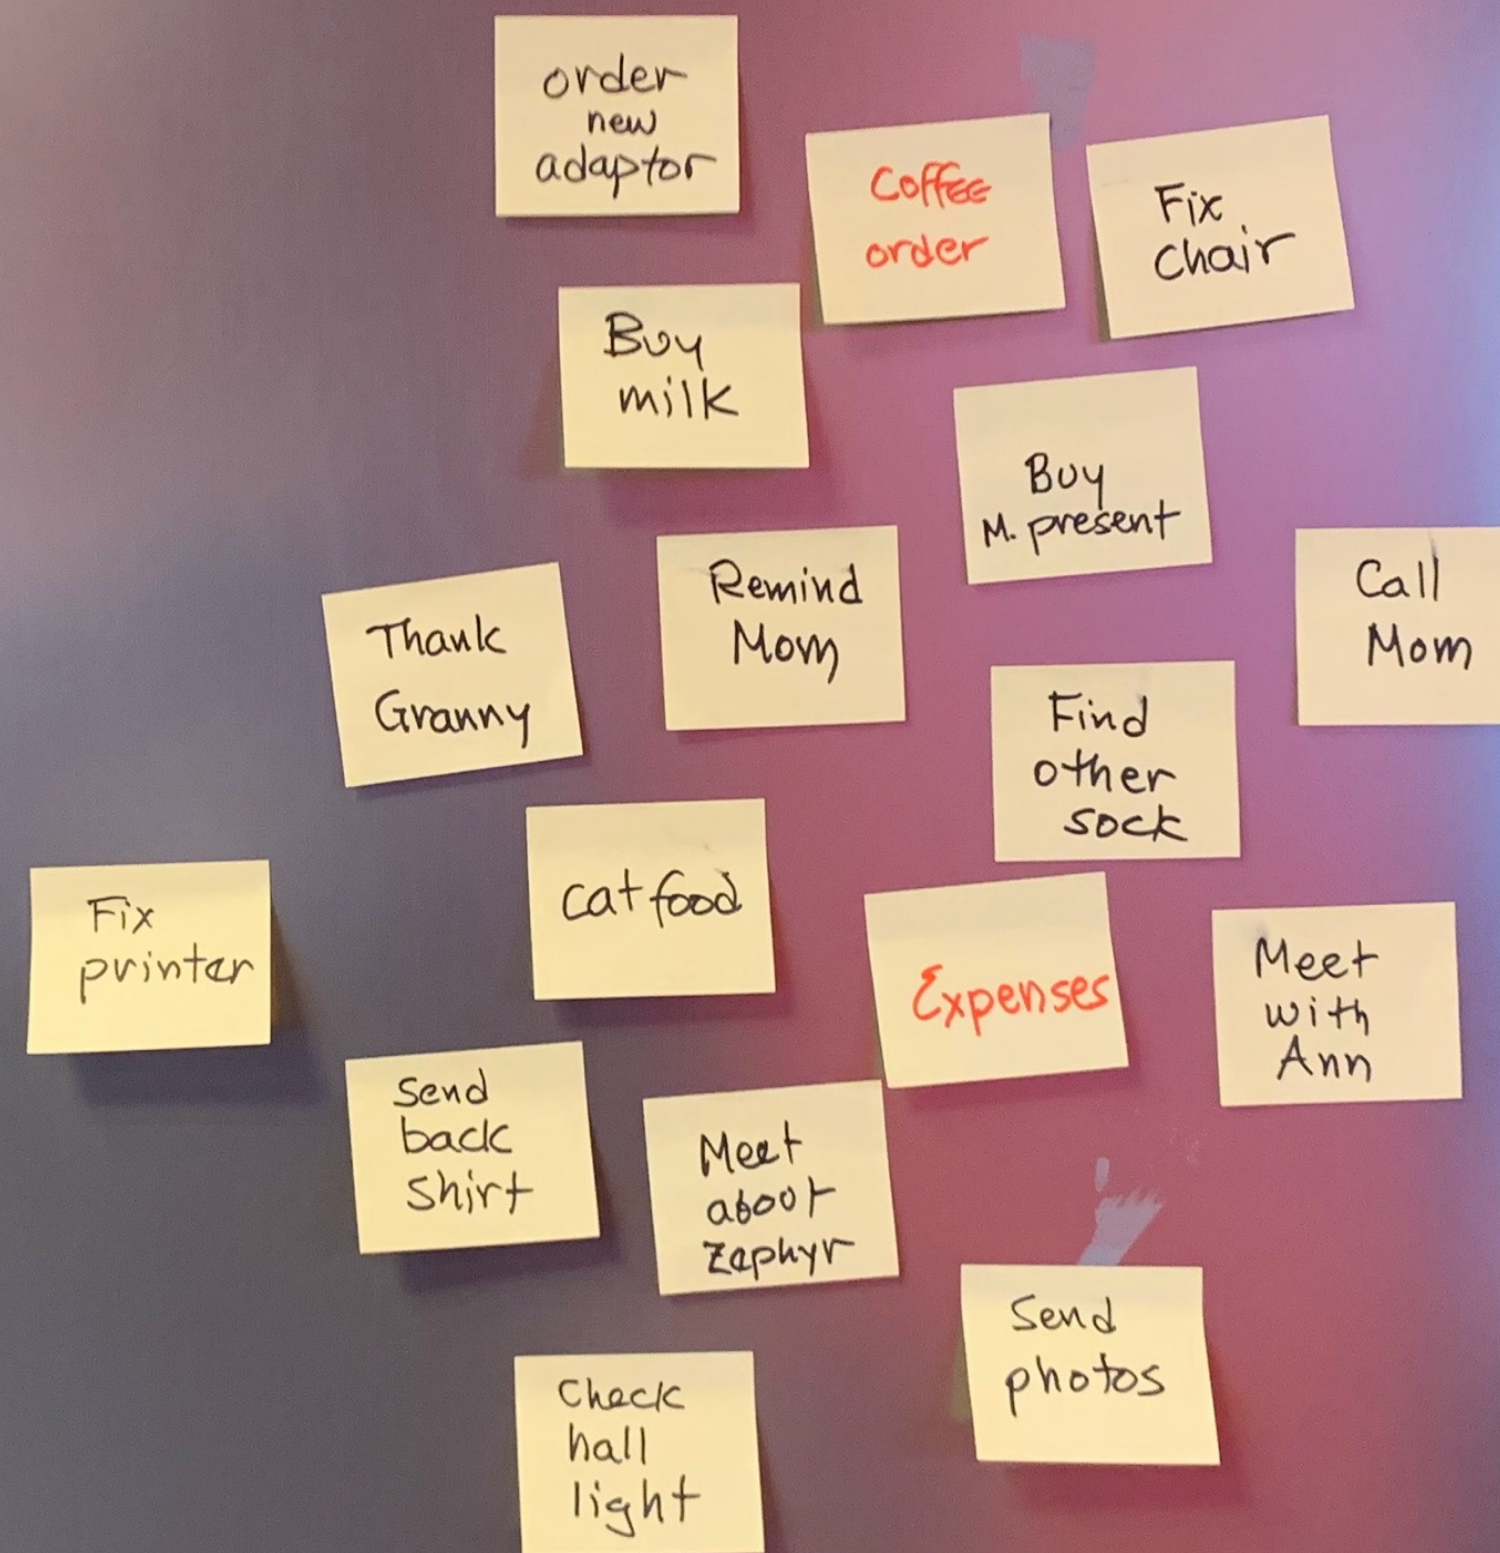 order
new
adaptor
Coffee
order
Fix
chair
Buy
milk
Buy
M. present
Remind
Mom
Call
Mom
Thank
Granny
Find
other
sock
cat food
Fix
printer
Expenses
Meet
with
Ann
Send
back
shirt
Meet
about
Zephyr
Send
photos
Check
hall
light